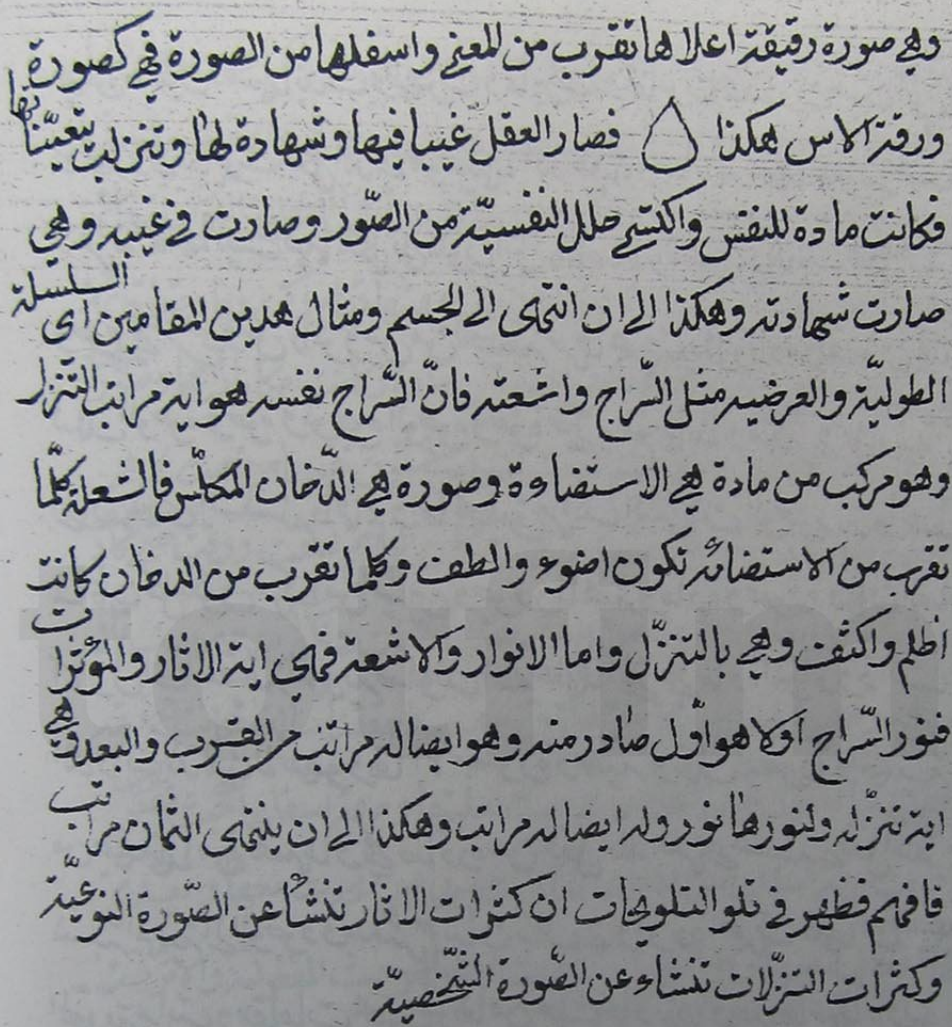 وهي صورة رقيقة اعلاها تقرب من المعنى واسفلها من الصورة فهي كصورة
ورقة الاس هكذا فصار العقل غيبا فيها وشهادة لها وتنزلت بتعيناتها
فكانت مادة للنفس واكتسى حلل النفسية من الصّور وصارت في غيبه وهي
صارت شهادته وهكذا الى ان انتهى الى الجسم ومثال هذين المقامين اى السلسلة
الطوليّة والعرضيه مثل السّراج واشعته فانّ السّراج نفسه هو اية مراتب التّنزل
وهو مركب من مادة هي الاستضاءة وصورة هي الدّخان المكلّس فالشعلة كلّما
تقرب من الاستضائه تكون اضوء والطف وكلما تقرب من الدخان كانت
اظلم واكثف وهي بالتنزّل واما الانوار والاشعة فهي اية الاثار والمؤثرات
فنور السّراج اولا هو اوّل صادر منه وهو ايضا له مراتب من القرب والبعد وهي
اية تنزّله ولنورها نور وله ايضا له مراتب وهكذا الى ان ينتهى الثمان مراتب
فافهم فظهر في تلو التلويحات ان كثرات الاثار تنشأ عن الصّورة النوعيّة
وكثرات التنزّلات تنشاء عن الصّورة الشّخصيّة